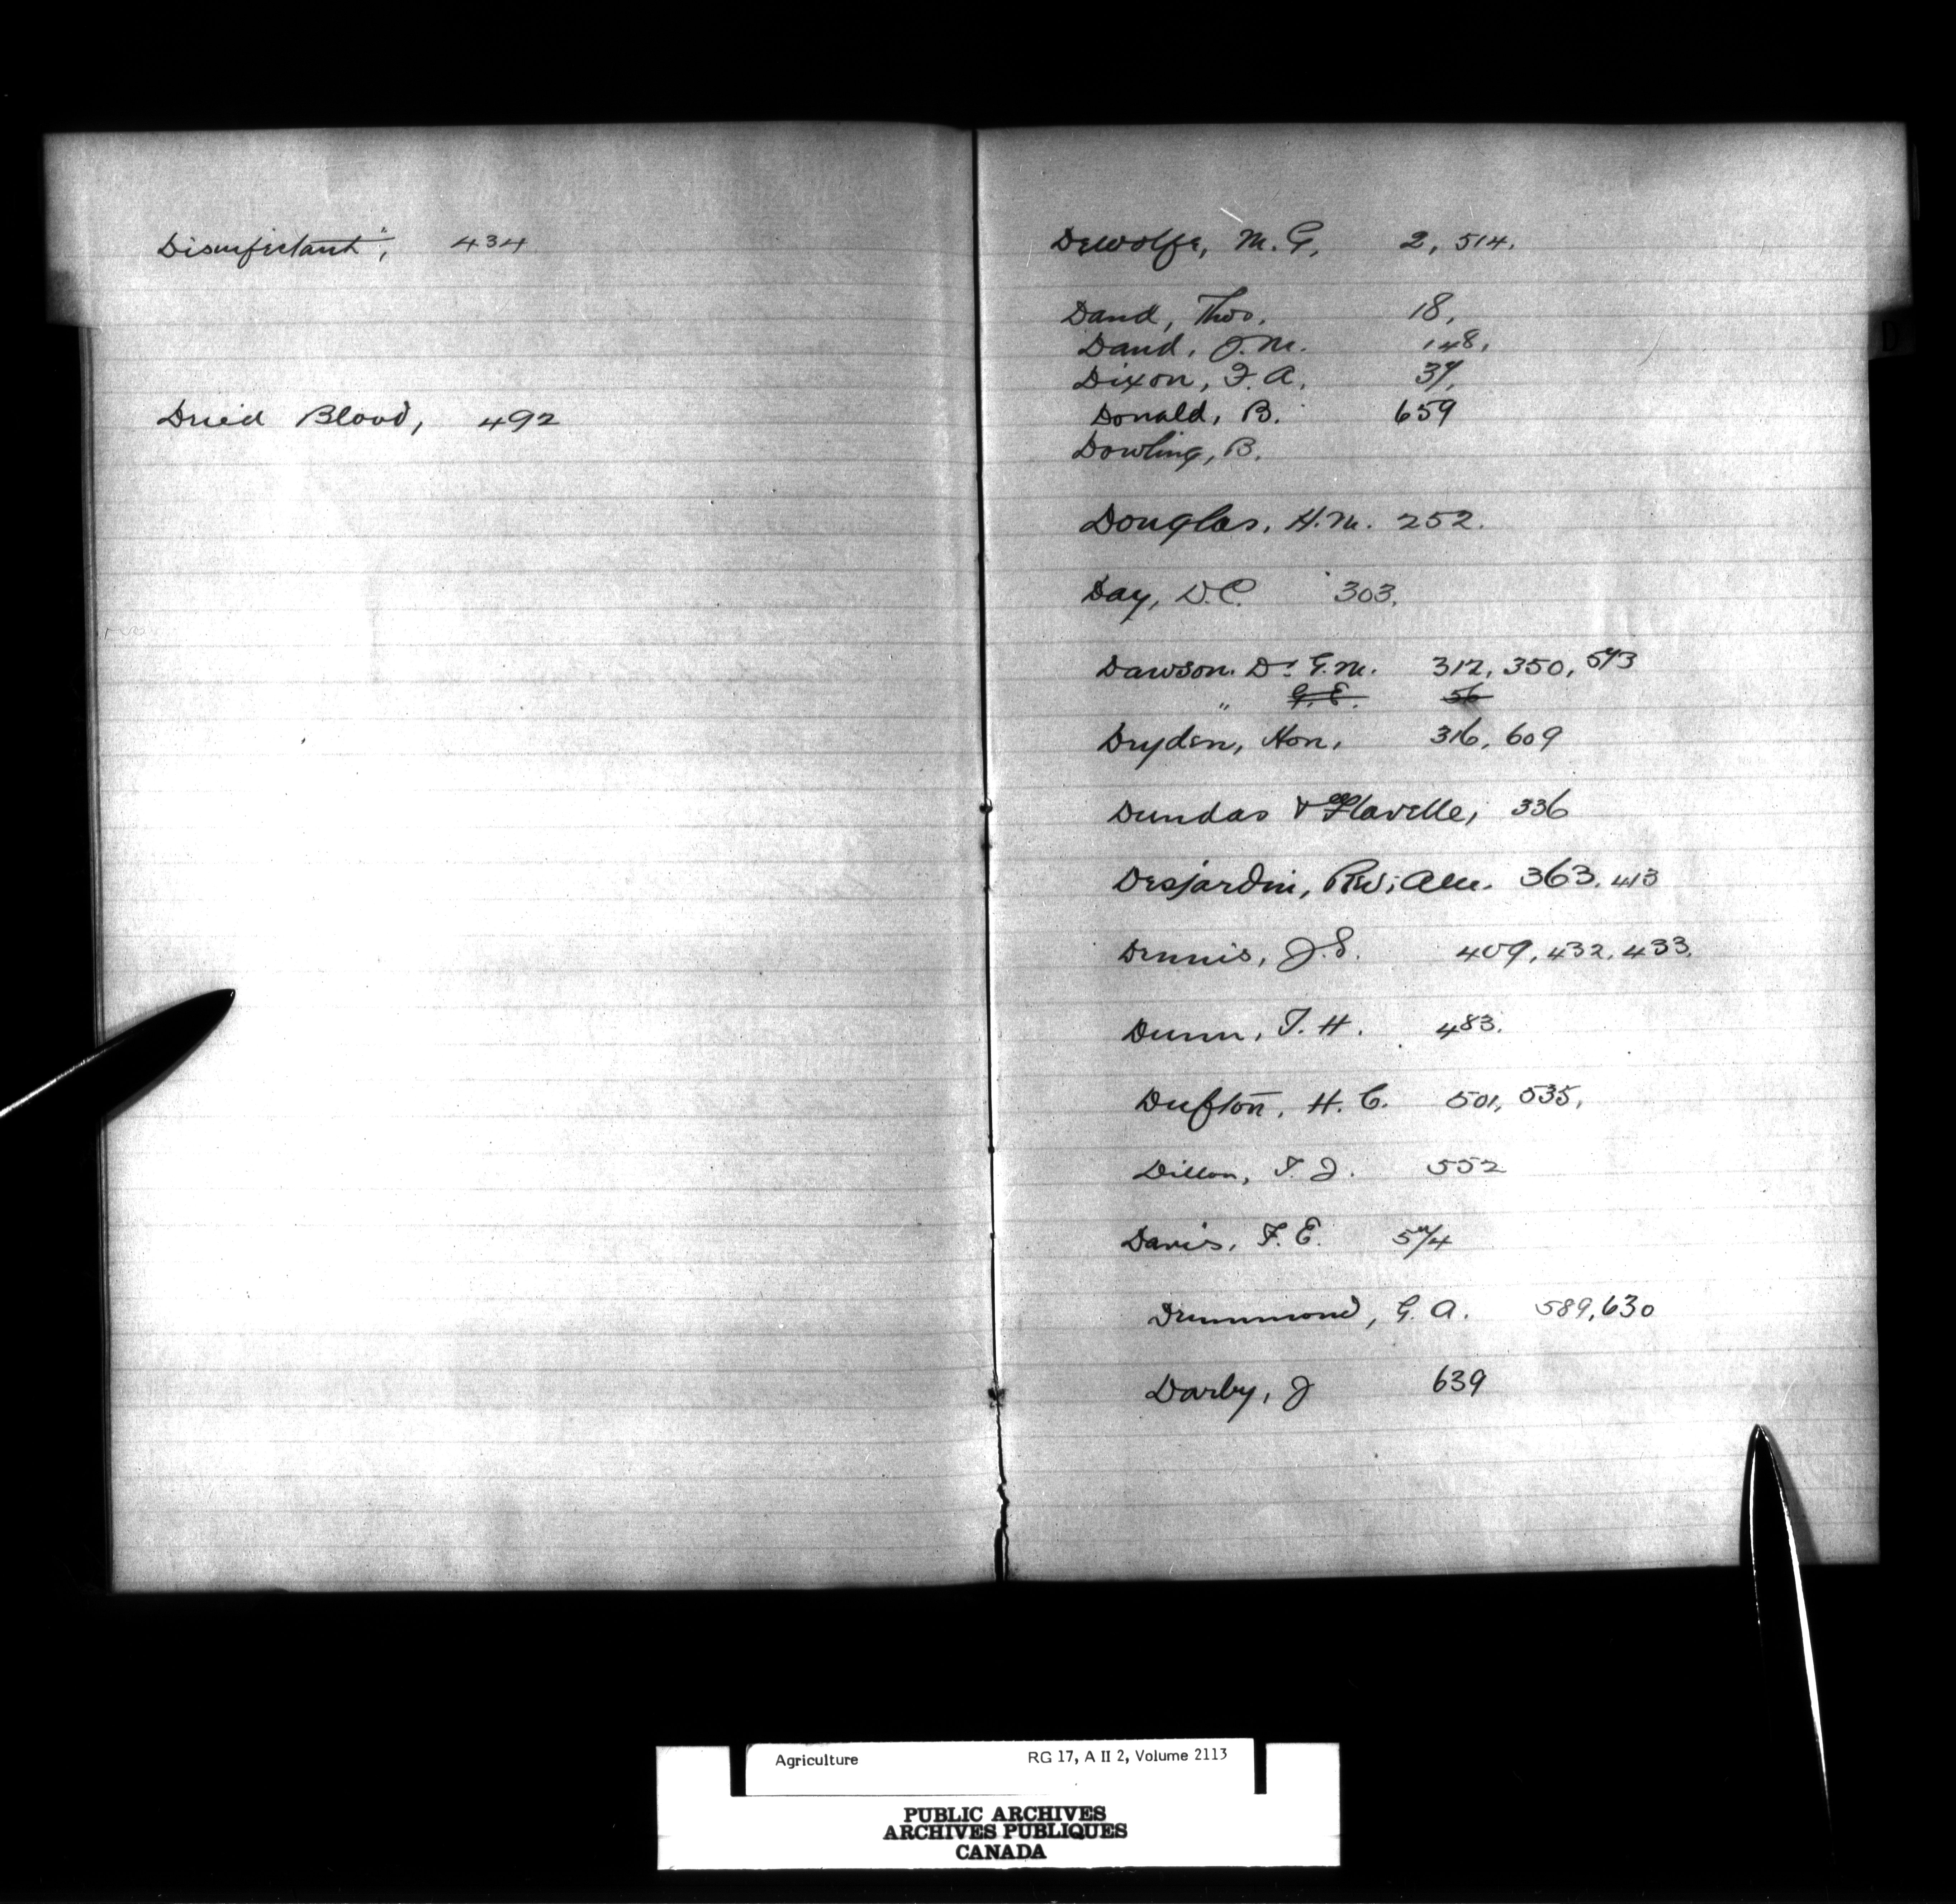 Disinfectant", 434
Dried Blood, 492
DeWolfe, M. G, 2, 514.
Dand, Thos. 18,
Dand, J. M. 148,
Dixon, F. A, 37,
Donald, B. 659
Dowling, B.
Douglas, H. M. 252.
Day, D. C. 303.
Dawson. Dr G. M. 312, 350, 573
" G. E. 56
Dryden, Hon, 316, 609
Dundas & Flavelle, 336
Desjardin, Rev; Alu. 363. 413
Dennis, J. S. 409, 432, 433.
Dunn, T. H. 483.
Dufton, H. C. 501, 535,
Dillon, T. J. 552
Davis, F. E. 574
Drummond, G. A. 589, 630
Darby, J 639
D
Agriculture RG 17, A II 2, Volume 2113
PUBLIC ARCHIVES
ARCHIVES PUBLIQUES
CANADA